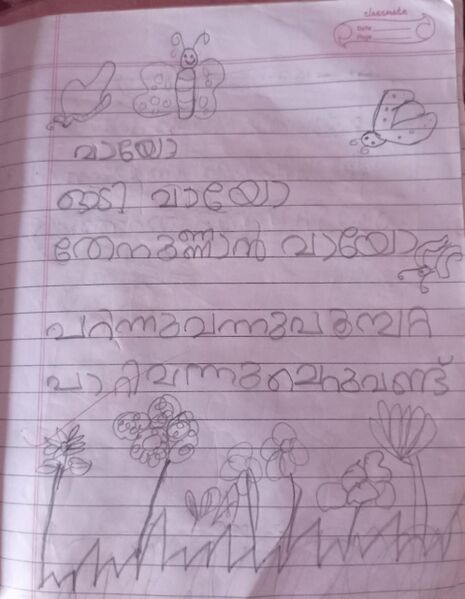 classmate
Date
Page
വായോ
ഓടി വായോ
തേനുണ്ണാൻ വായോ
പറിന്നുവന്നുപൂമ്പറ്റ
പാറിവന്നു ചെറുവണ്ട്